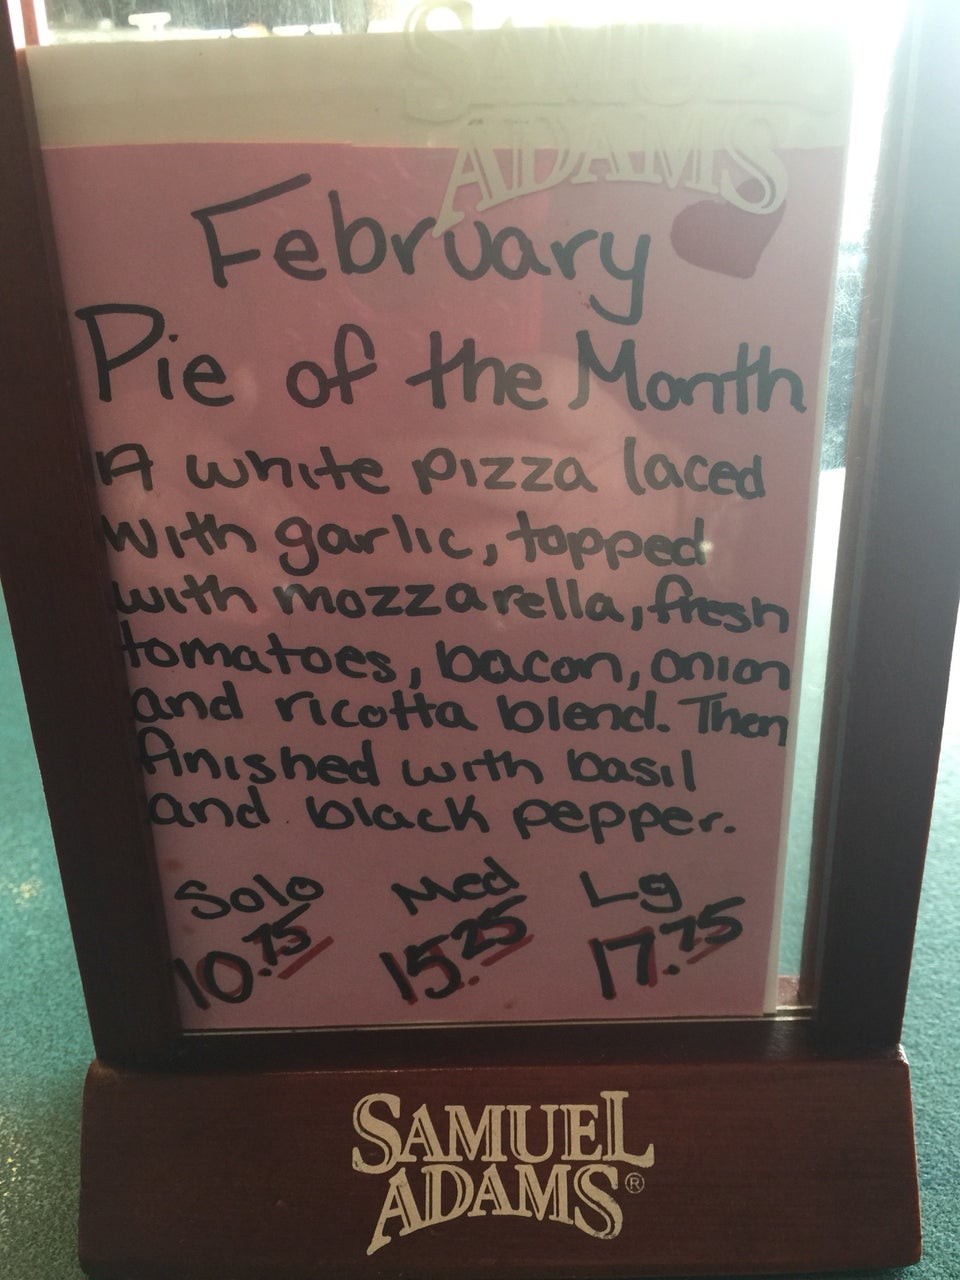 SAMUEL
ADAMS
February
Pie of the Month
A white pizza laced
with garlic, topped
with mozzarella, fresh
tomatoes, bacon, onion
and ricotta blend. Then
finished with basil
and black pepper.
Solo Med Lg
10.75 15.25 17.75
SAMUEL
ADAMS®